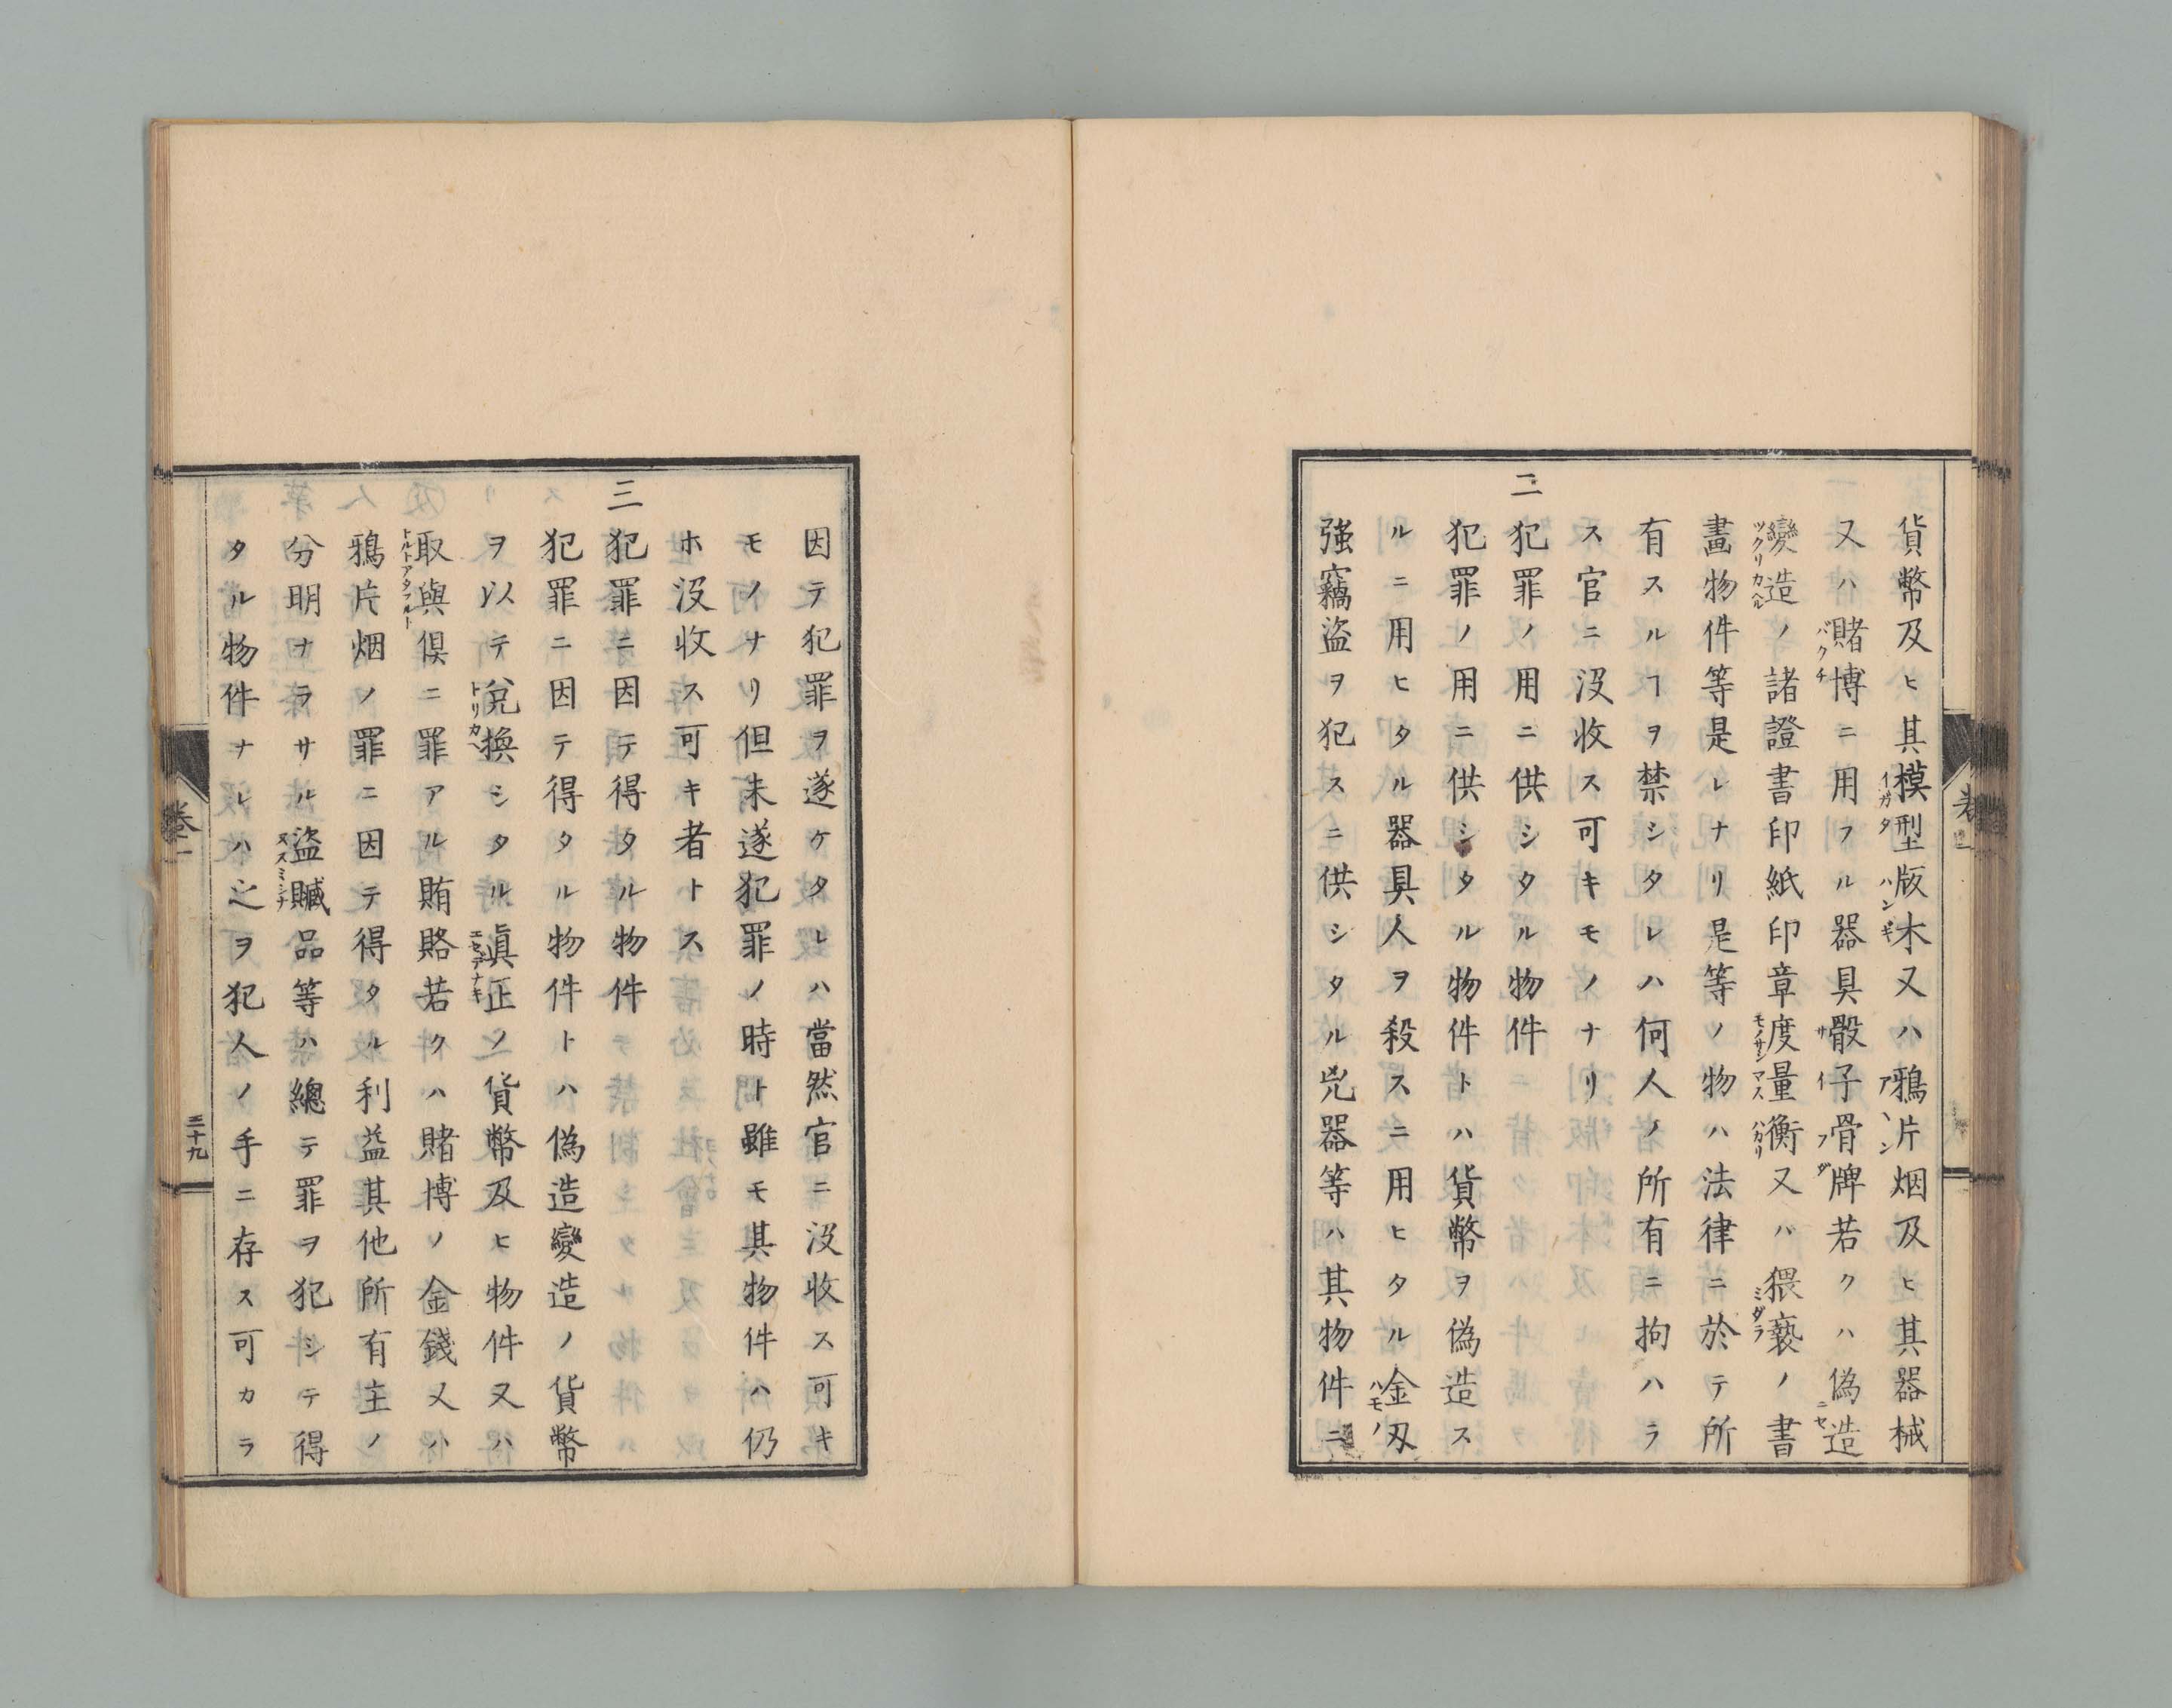 貨幣及ヒ其模型版木又ハ鴉片烟及ヒ其器械
又ハ賭博ニ用フル器具骰子骨牌若クハ偽造
變造ノ諸證書印紙印章度量衡又バ猥褻ノ書
畫物件等是レナリ是等ノ物ハ法律ニ於テ所
有スルヿヲ禁シタレハ何人ノ所有ニ拘ハラ
ス官ニ沒收ス可キモノナリ
二 犯罪ノ用ニ供シタル物件
犯罪ノ用ニ供シタル物件トハ貨幣ヲ偽造ス
ルニ用ヒタル器具人ヲ殺スニ用ヒタル金刄
強竊盜ヲ犯スニ供シタル兇器等ハ其物件ニ
因テ犯罪ヲ遂ケタレハ當然官ニ沒收ス可キ
モノナリ但未遂犯罪ノ時ト雖モ其物件ハ仍
ホ沒收ス可キ者トス
三 犯罪ニ因テ得タル物件
犯罪ニ因テ得タル物件トハ偽造變造ノ貨幣
ヲ以テ兌換シタル眞正ノ貨幣及ヒ物件又ハ
取與俱ニ罪アル賄賂若クハ賭博ノ金錢又ハ
鴉片烟ノ罪ニ因テ得タル利益其他所有主ノ
分明ナラサル盜贓品等ハ總テ罪ヲ犯シテ得
タル物件ナレハ之ヲ犯人ノ手ニ存ス可カラ
卷一
三十九